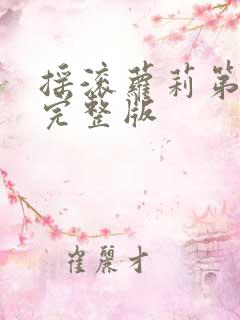 摇滚萝莉第
完整版
崔丽才